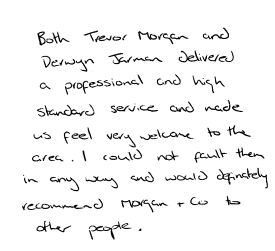 Both Trevor Morgan and
Derwyn Jarman delivered
a professional and high
standard service and made
us feel very welcome to the
area. I could not fault them
in any way and would definately
recommend Morgan + Co to
other people.